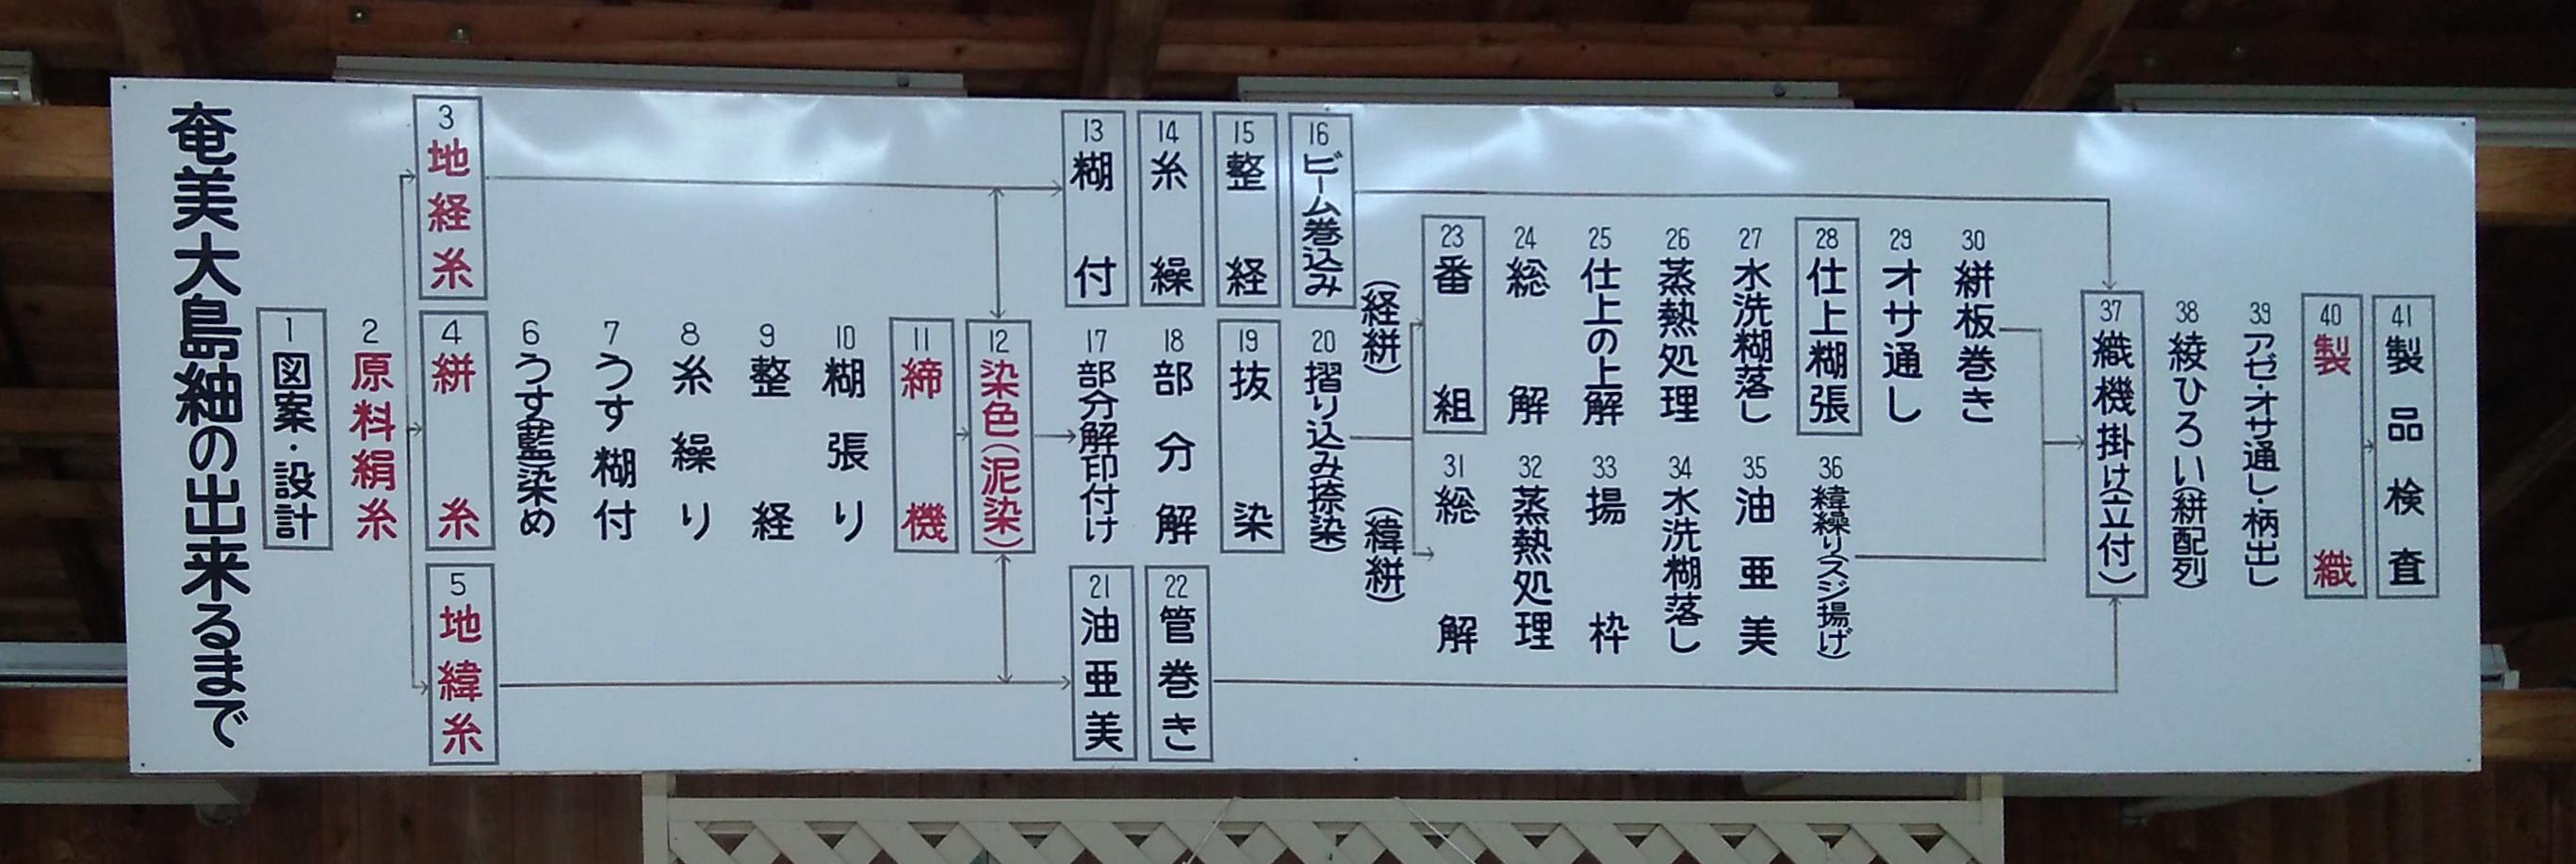 奄美大島紬の出来るまで
1 図案・設計
2 原料絹糸
3 地経糸
4 絣糸
5 地緯糸
6 うす藍染め
7 うす糊付
8 糸繰り
9 整経
10 糊張り
11 締機
12 染色(泥染)
13 糊付
14 糸繰
15 整経
16 ビーム巻込み
17 部分解印付け
18 部分解
19 抜染
20 摺り込み捺染)
21 油亜美
22 管巻き
(経絣)
23 番組
24 総解
25 仕上の上解
26 蒸熱処理
27 水洗糊落し
28 仕上糊張
29 オサ通し
30 絣板巻き
(緯絣)
31 総解
32 蒸熱処理
33 揚枠
34 水洗糊落し
35 油亜美
36 緯繰り(スジ揚げ)
37 織機掛け(立付)
38 綾ひろい(絣配列)
39 アゼ・オサ通し・柄出し
40 製織
41 製品検査